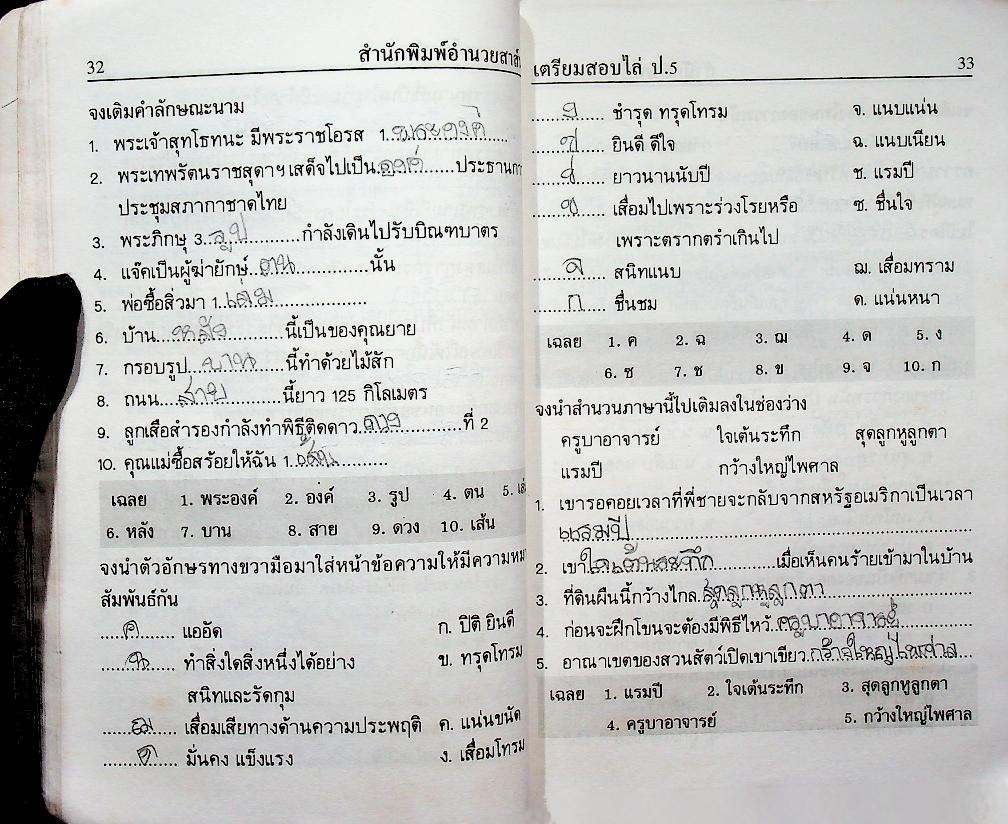 32
สำนักพิมพ์อำนวยสาส์
จงเติมคำลักษณะนาม
1. พระเจ้าสุทโธทนะ มีพระราชโอรส 1 พระองค์
2. พระเทพรัตนราชสุดาฯ เสด็จไปเป็น องค์ ประธานกา
ประชุมสภากาชาดไทย
3. พระภิกษุ 3 รูป กำลังเดินไปรับบิณฑบาตร
4. แจ๊คเป็นผู้ฆ่ายักษ์ ตน นั้น
5. พ่อซื้อสิ่วมา 1 เล่ม
6. บ้าน หลัง นี้เป็นของคุณยาย
7. กรอบรูป บาน นี้ทำด้วยไม้สัก
8. ถนน สาย นี้ยาว 125 กิโลเมตร
9. ลูกเสือสำรองกำลังทำพิธีติดดาว ดวง ที่ 2
10. คุณแม่ซื้อสร้อยให้ฉัน 1 เส้น
เฉลย 1. พระองค์ 2. องค์ 3. รูป 4. ตน 5. เล่
6. หลัง 7. บาน 8. สาย 9. ดวง 10. เส้น
จงนำตัวอักษรทางขวามือมาใส่หน้าข้อความให้มีความหม
สัมพันธ์กัน
ค แออัด ก. ปิติ ยินดี
ฉ ทำสิ่งใดสิ่งหนึ่งได้อย่าง ข. ทรุดโทรม
สนิทและรัดกุม
ฌ เสื่อมเสียทางด้านความประพฤติ ค. แน่นขนัด
ด มั่นคง แข็งแรง ง. เสื่อมโทรม
เตรียมสอบไล่ ป.5
33
ชำรุด ทรุดโทรม จ. แนบแน่น
ซ ยินดี ดีใจ ฉ. แนบเนียน
ช ยาวนานนับปี ช. แรมปี
ข เสื่อมไปเพราะร่วงโรยหรือ ซ. ชื่นใจ
เพราะตรากตรำเกินไป
จ สนิทแนบ ฌ. เสื่อมทราม
ก ชื่นชม ด. แน่นหนา
เฉลย 1. ค 2. ฉ 3. ฌ 4. ด 5. ง
6. ซ 7. ช 8. ข 9. จ 10. ก
จงนำสำนวนภาษานี้ไปเติมลงในช่องว่าง
ครูบาอาจารย์ ใจเต้นระทึก สุดลูกหูลูกตา
แรมปี กว้างใหญ่ไพศาล
1. เขารอคอยเวลาที่พี่ชายจะกลับจากสหรัฐอเมริกาเป็นเวลา
แรมปี
2. เขา ใจเต้นระทึก เมื่อเห็นคนร้ายเข้ามาในบ้าน
3. ที่ดินผืนนี้กว้างไกล สุดลูกหูลูกตา
4. ก่อนจะฝึกโขนจะต้องมีพิธีไหว้ ครูบาอาจารย์
5. อาณาเขตของสวนสัตว์เปิดเขาเขียว กว้างใหญ่ไพศาล
เฉลย 1. แรมปี 2. ใจเต้นระทึก 3. สุดลูกหูลูกตา
4. ครูบาอาจารย์ 5. กว้างใหญ่ไพศาล